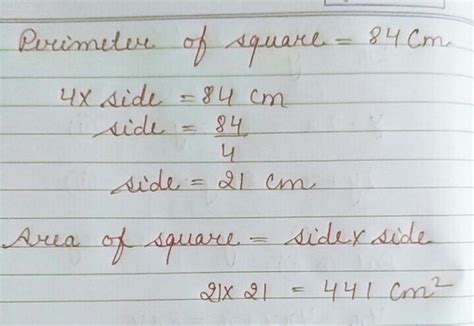 Perimeter of square = 84 Cm
4x side = 84 cm
side = 84/4
side = 21 cm
Area of square = side x side
21 x 21 = 441 cm²